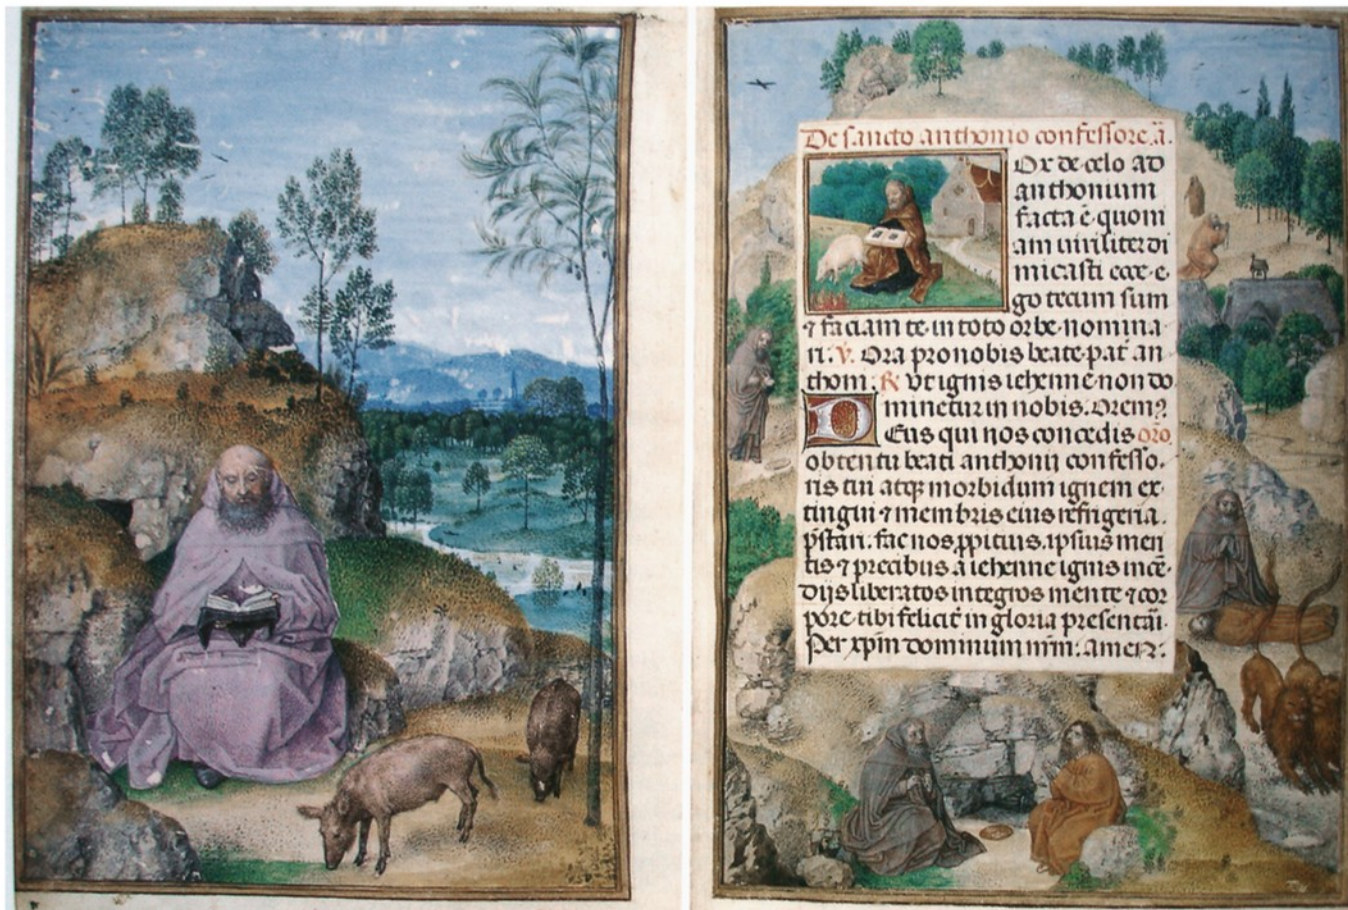 De sancto anthonio confessore. ã.
Ox de celo ad
anthonium
facta ē. quoni
am viriliter di
micasti ecce e
go tecum sum
⁊ faciam te in toto orbe nomina
ri. V. Ora pro nobis beate pat̄ an
thoni. R Vt ignis iehenne non do
minetur in nobis. Orem⁹
Deus qui nos concedis oro.
obtentu beati anthonij confesso
ris tui atqȝ morbidum ignem ex
tingui ⁊ membris eius refrigeria
p̄stari. fac nos ꝓpitius. ipsius meri
tis ⁊ precibus a iehenne ignis incē
dijs liberatos integros mente ⁊ cor
pore tibi felicit̄ in gloria presentāi.
Per xp̄m dominum nrm̄. amen.